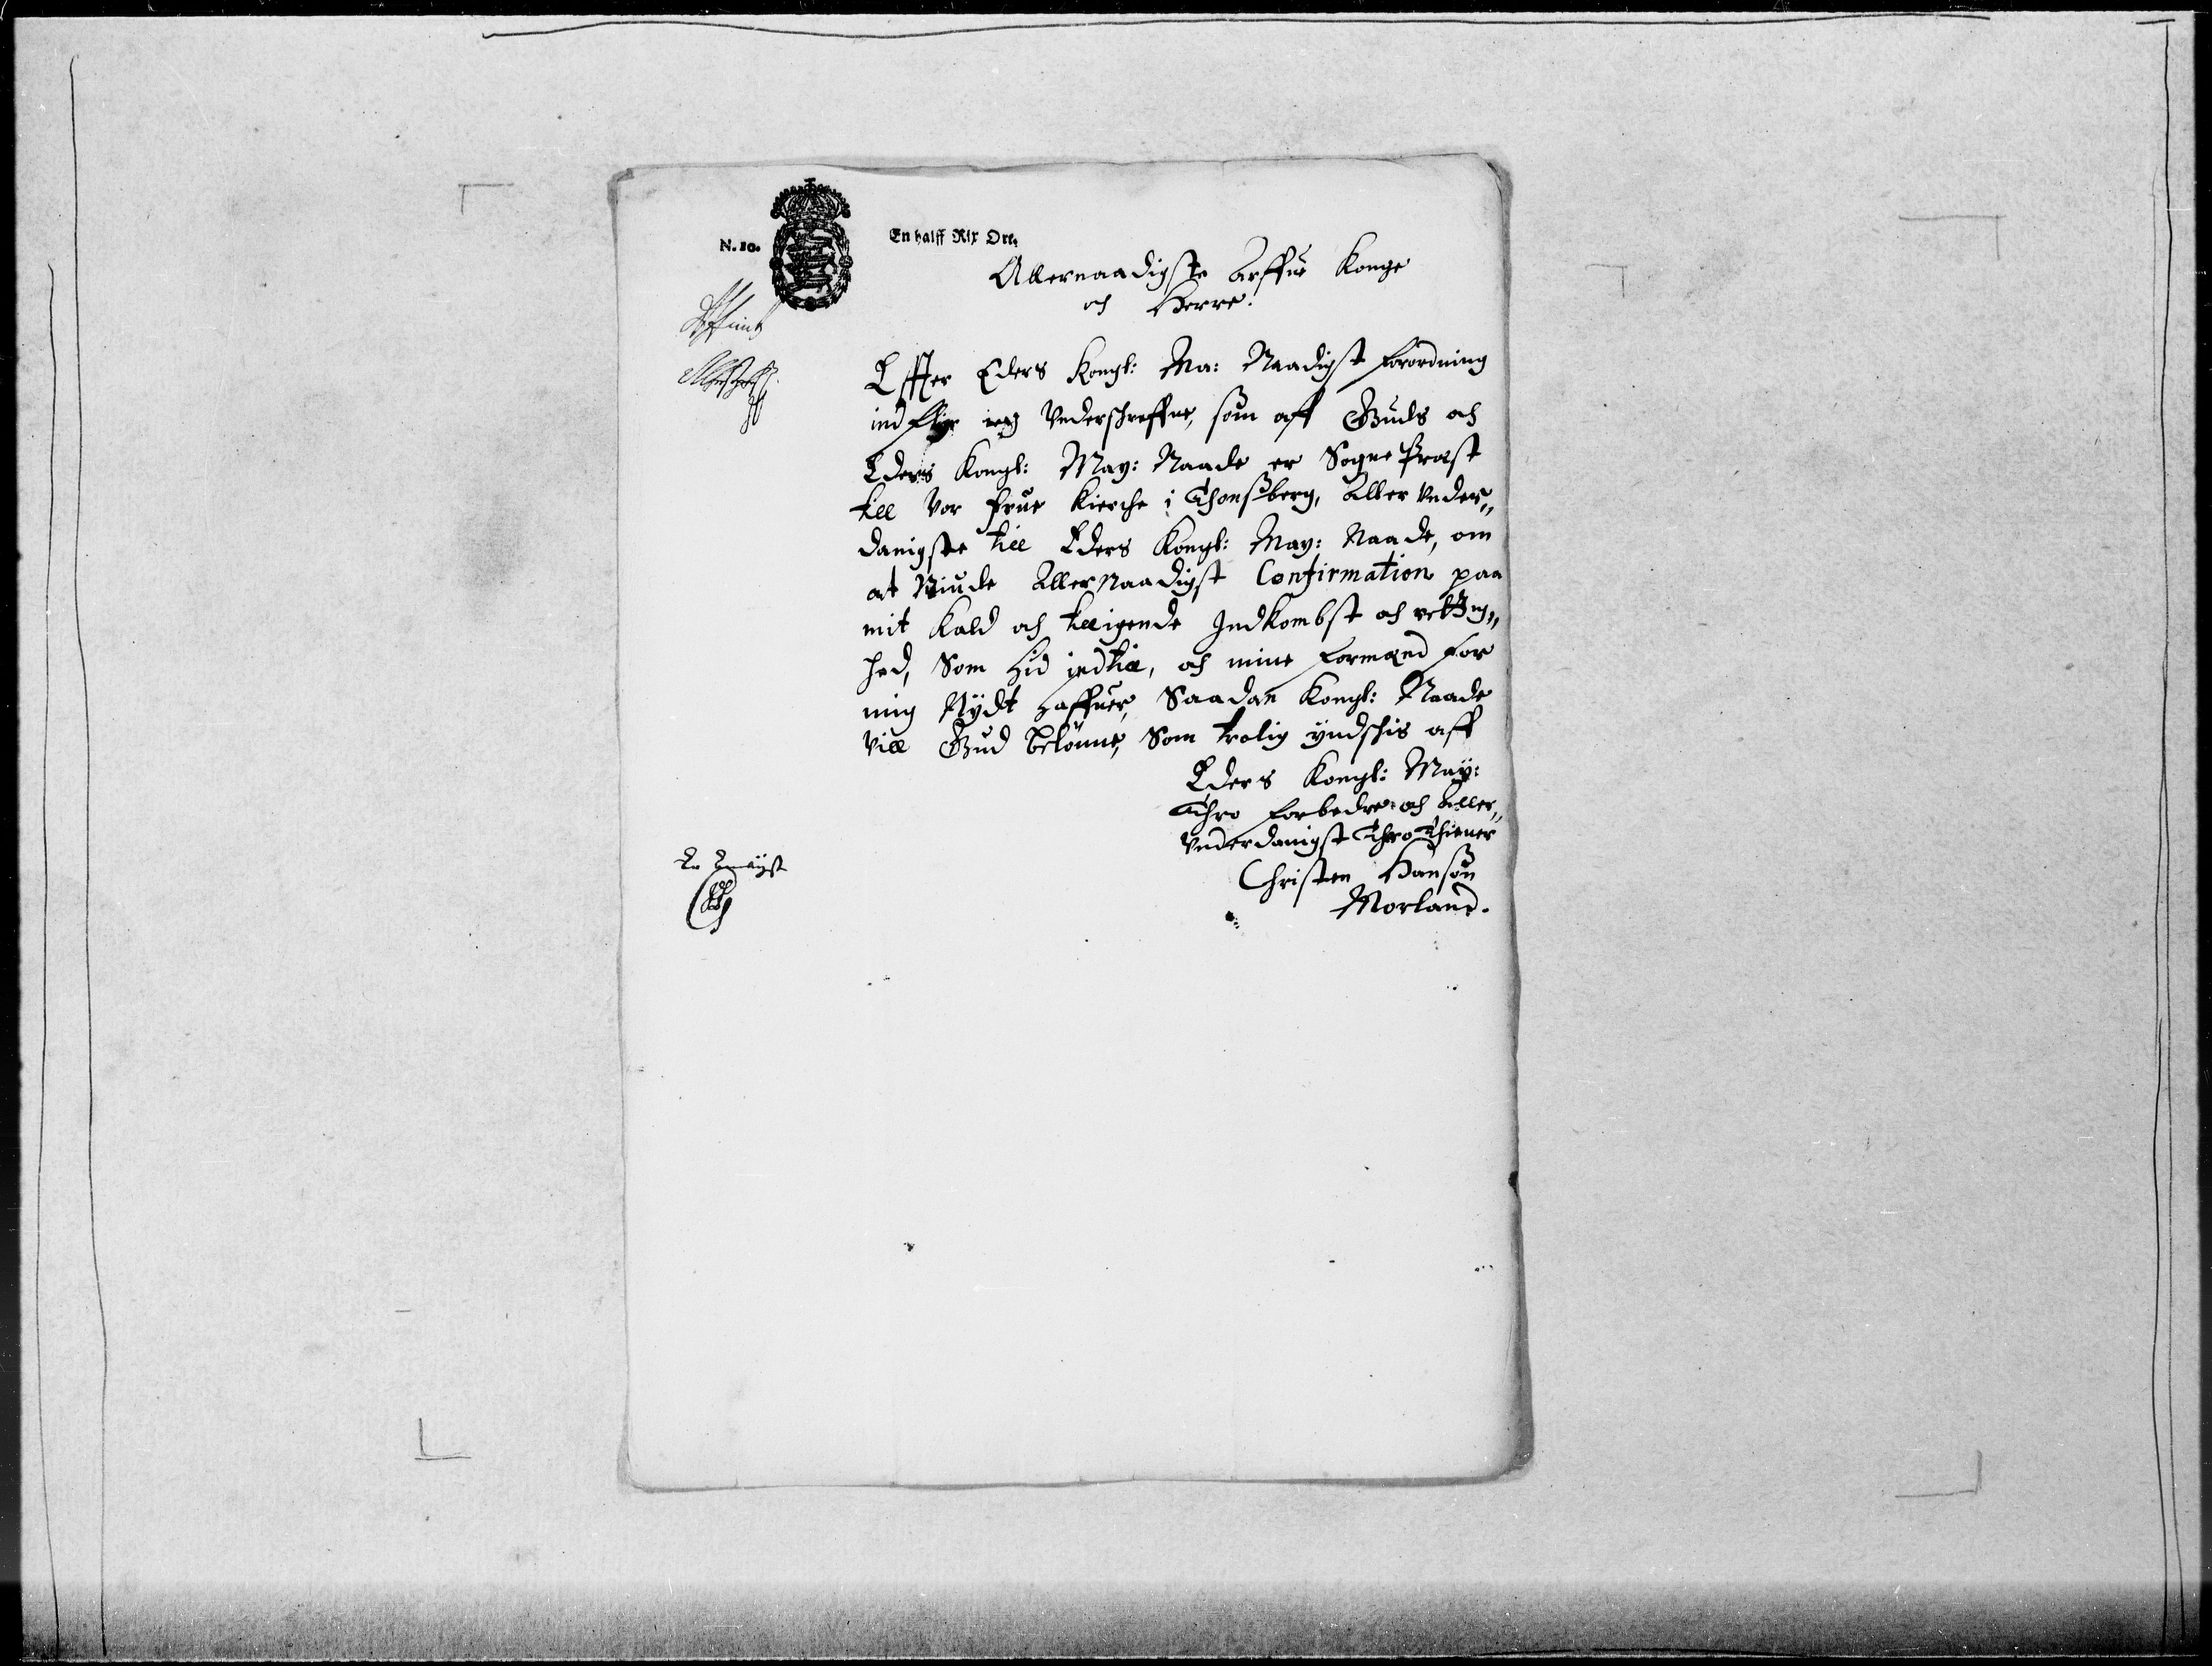 N. 10.
En halff Rix Ort.
Allernaadigste Arffue Konge
och Herre.
Effter Eders Kongl: Ma: Naadigst forordning
ind flyr ieg Underschreffne, som aff Guds och
Eders Kongl: May: Naade er Sogne Præst
till Vor frue Kierche i Thonsberg, Aller Under„
danigste till Eders Kongl: May: Naade, om
at Niude Allernaadigst Confirmation paa
mit Kald och tilligende Indkombst och rettig„
hed, Som hid indtill, och mine formænd for
mig Nÿdt haffuer, Saadan Kongl: Naade
vill Gud belönne, Som trolig ÿndschis aff
Eders Kongl: Maÿ:
Thro forbedre och Aller„
underdanigst Thro Thiener
Christen Hansøn
Morland.